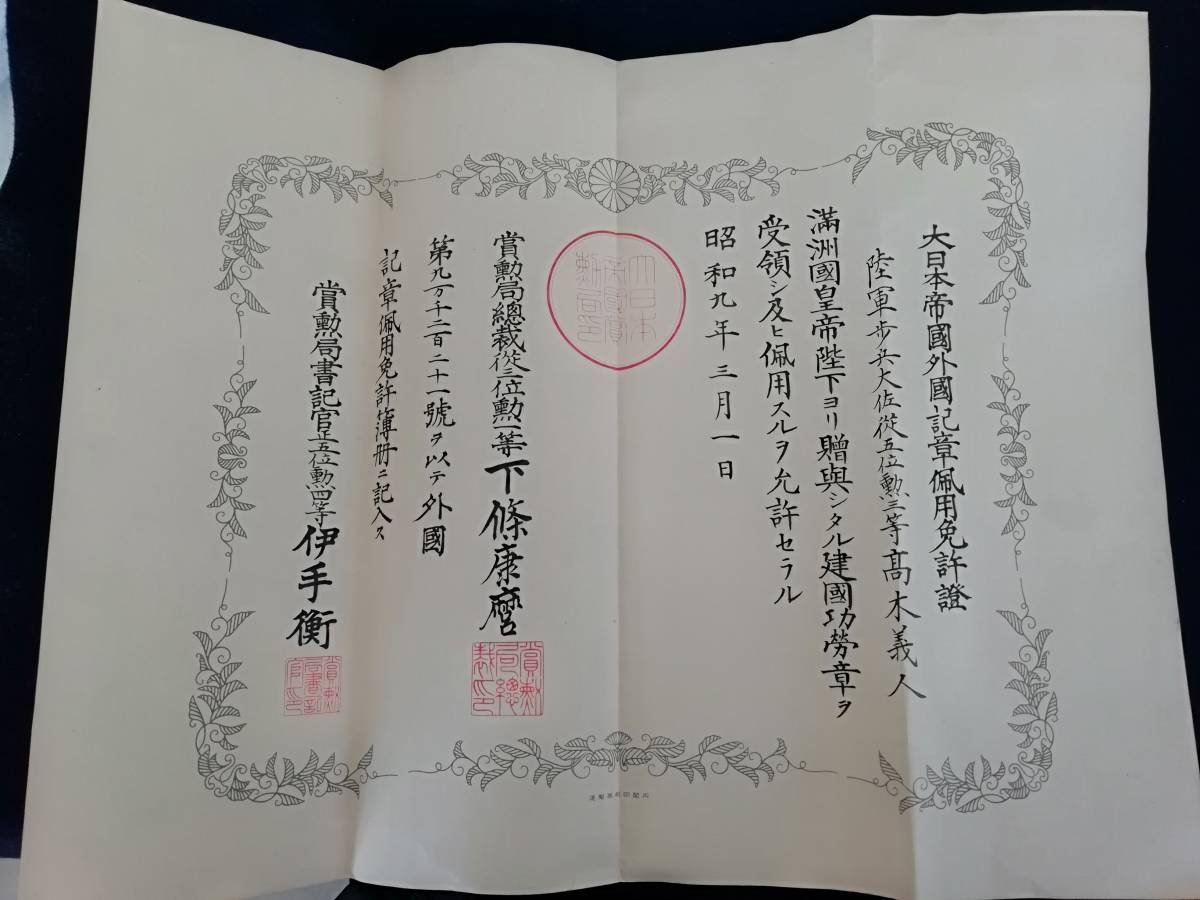 大日本帝國外國記章佩用免許證
陸軍歩兵大佐從五位勲三等髙木義人
滿洲國皇帝陛下ヨリ贈與シタル建國功勞章ヲ
受領シ及ヒ佩用スルヲ允許セラル
昭和九年三月一日
大日本
帝國賞
勲局印
賞勲局總裁從三位勲一等下條康麿
賞勲
局總
裁印
第九万千二百二十一號ヲ以テ外國
記章佩用免許簿册ニ記入ス
賞勲局書記官正五位勲四等伊手衡
賞勲
局書記
官印
內閣印刷局製造